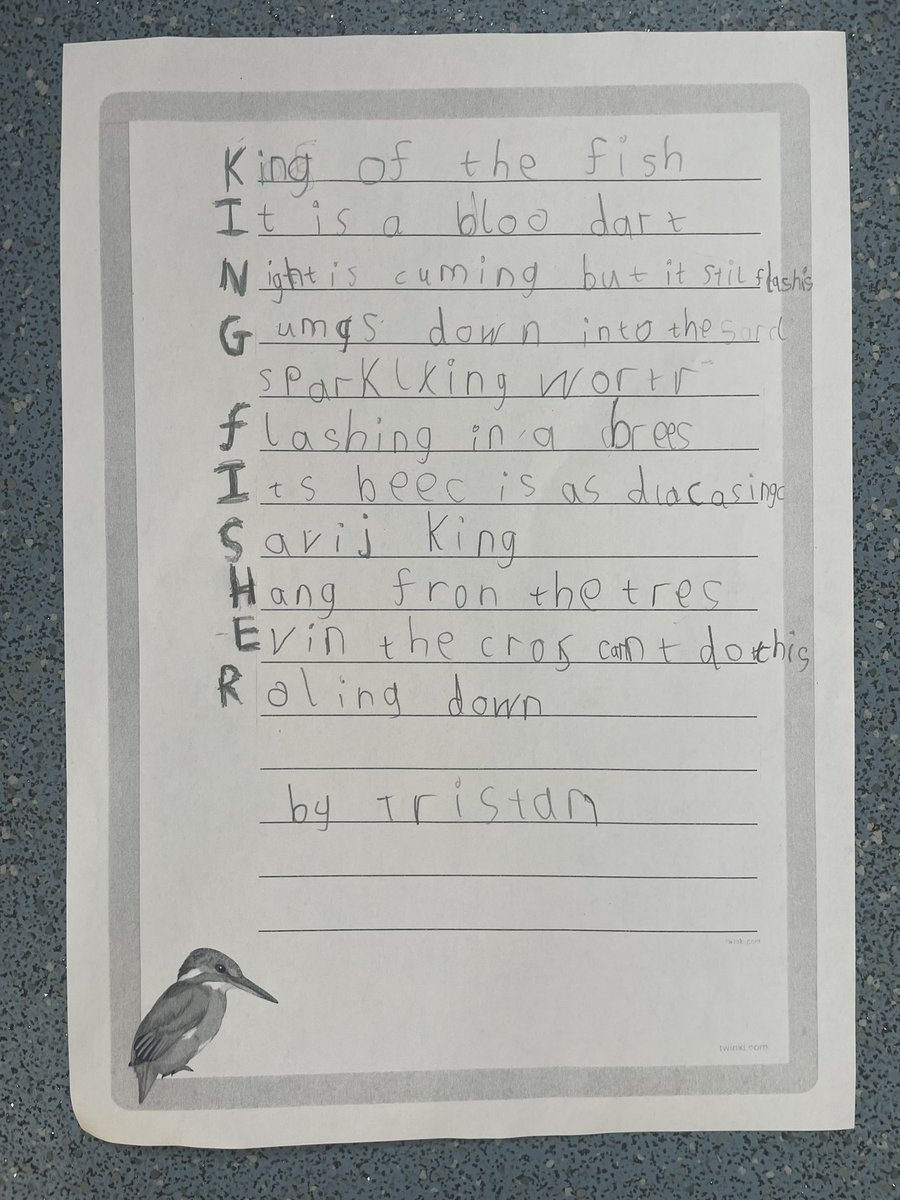 King of the fish
It is a bloo dart
Night is cuming but it stil flashis
Gumgs down into the
sparklking wortr
flashing in a brees
Its beec is as diacasing
Savij King
Hang fron the tres
Evin the cros cannt do this
Roling down
by Tristan
twinkl.com
twinkl.com